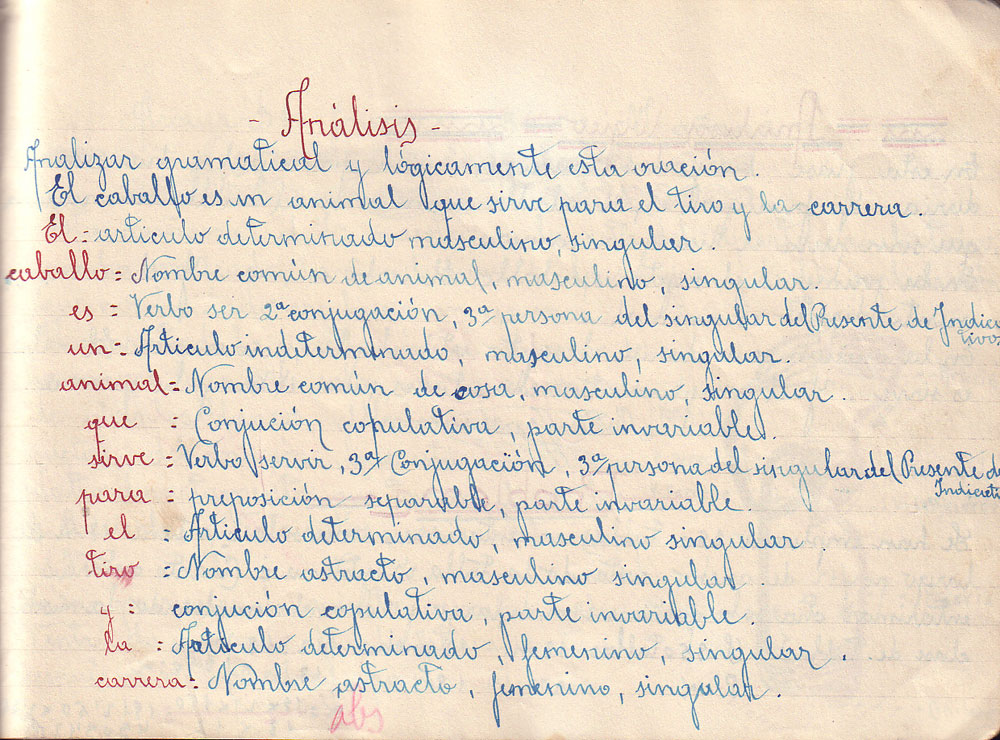 - Análisis -
Analizar gramatical y lógicamente esta oración.
El caballo es un animal que sirve para el tiro y la carrera.
El: artículo determinado masculino, singular.
caballo = Nombre común de animal, masculino, singular.
es = Verbo ser 2ª conjugación, 3ª persona del singular del Presente de Indica
tivos
un = Artículo indeterminado, masculino, singular.
animal = Nombre común de cosa, masculino, singular.
que : Conjución copulativa, parte invariable.
sirve = Verbo servir, 3ª Conjugación, 3ª persona del singular del Presente de
Indicati
para = preposición separable, parte invariable.
el = Artículo determinado, masculino singular.
tiro = Nombre astracto, masculino singular
y : conjución copulativa, parte invariable.
la : Artículo determinado, femenino, singular.
carrera = Nombre astracto, femenino, singular.
abs